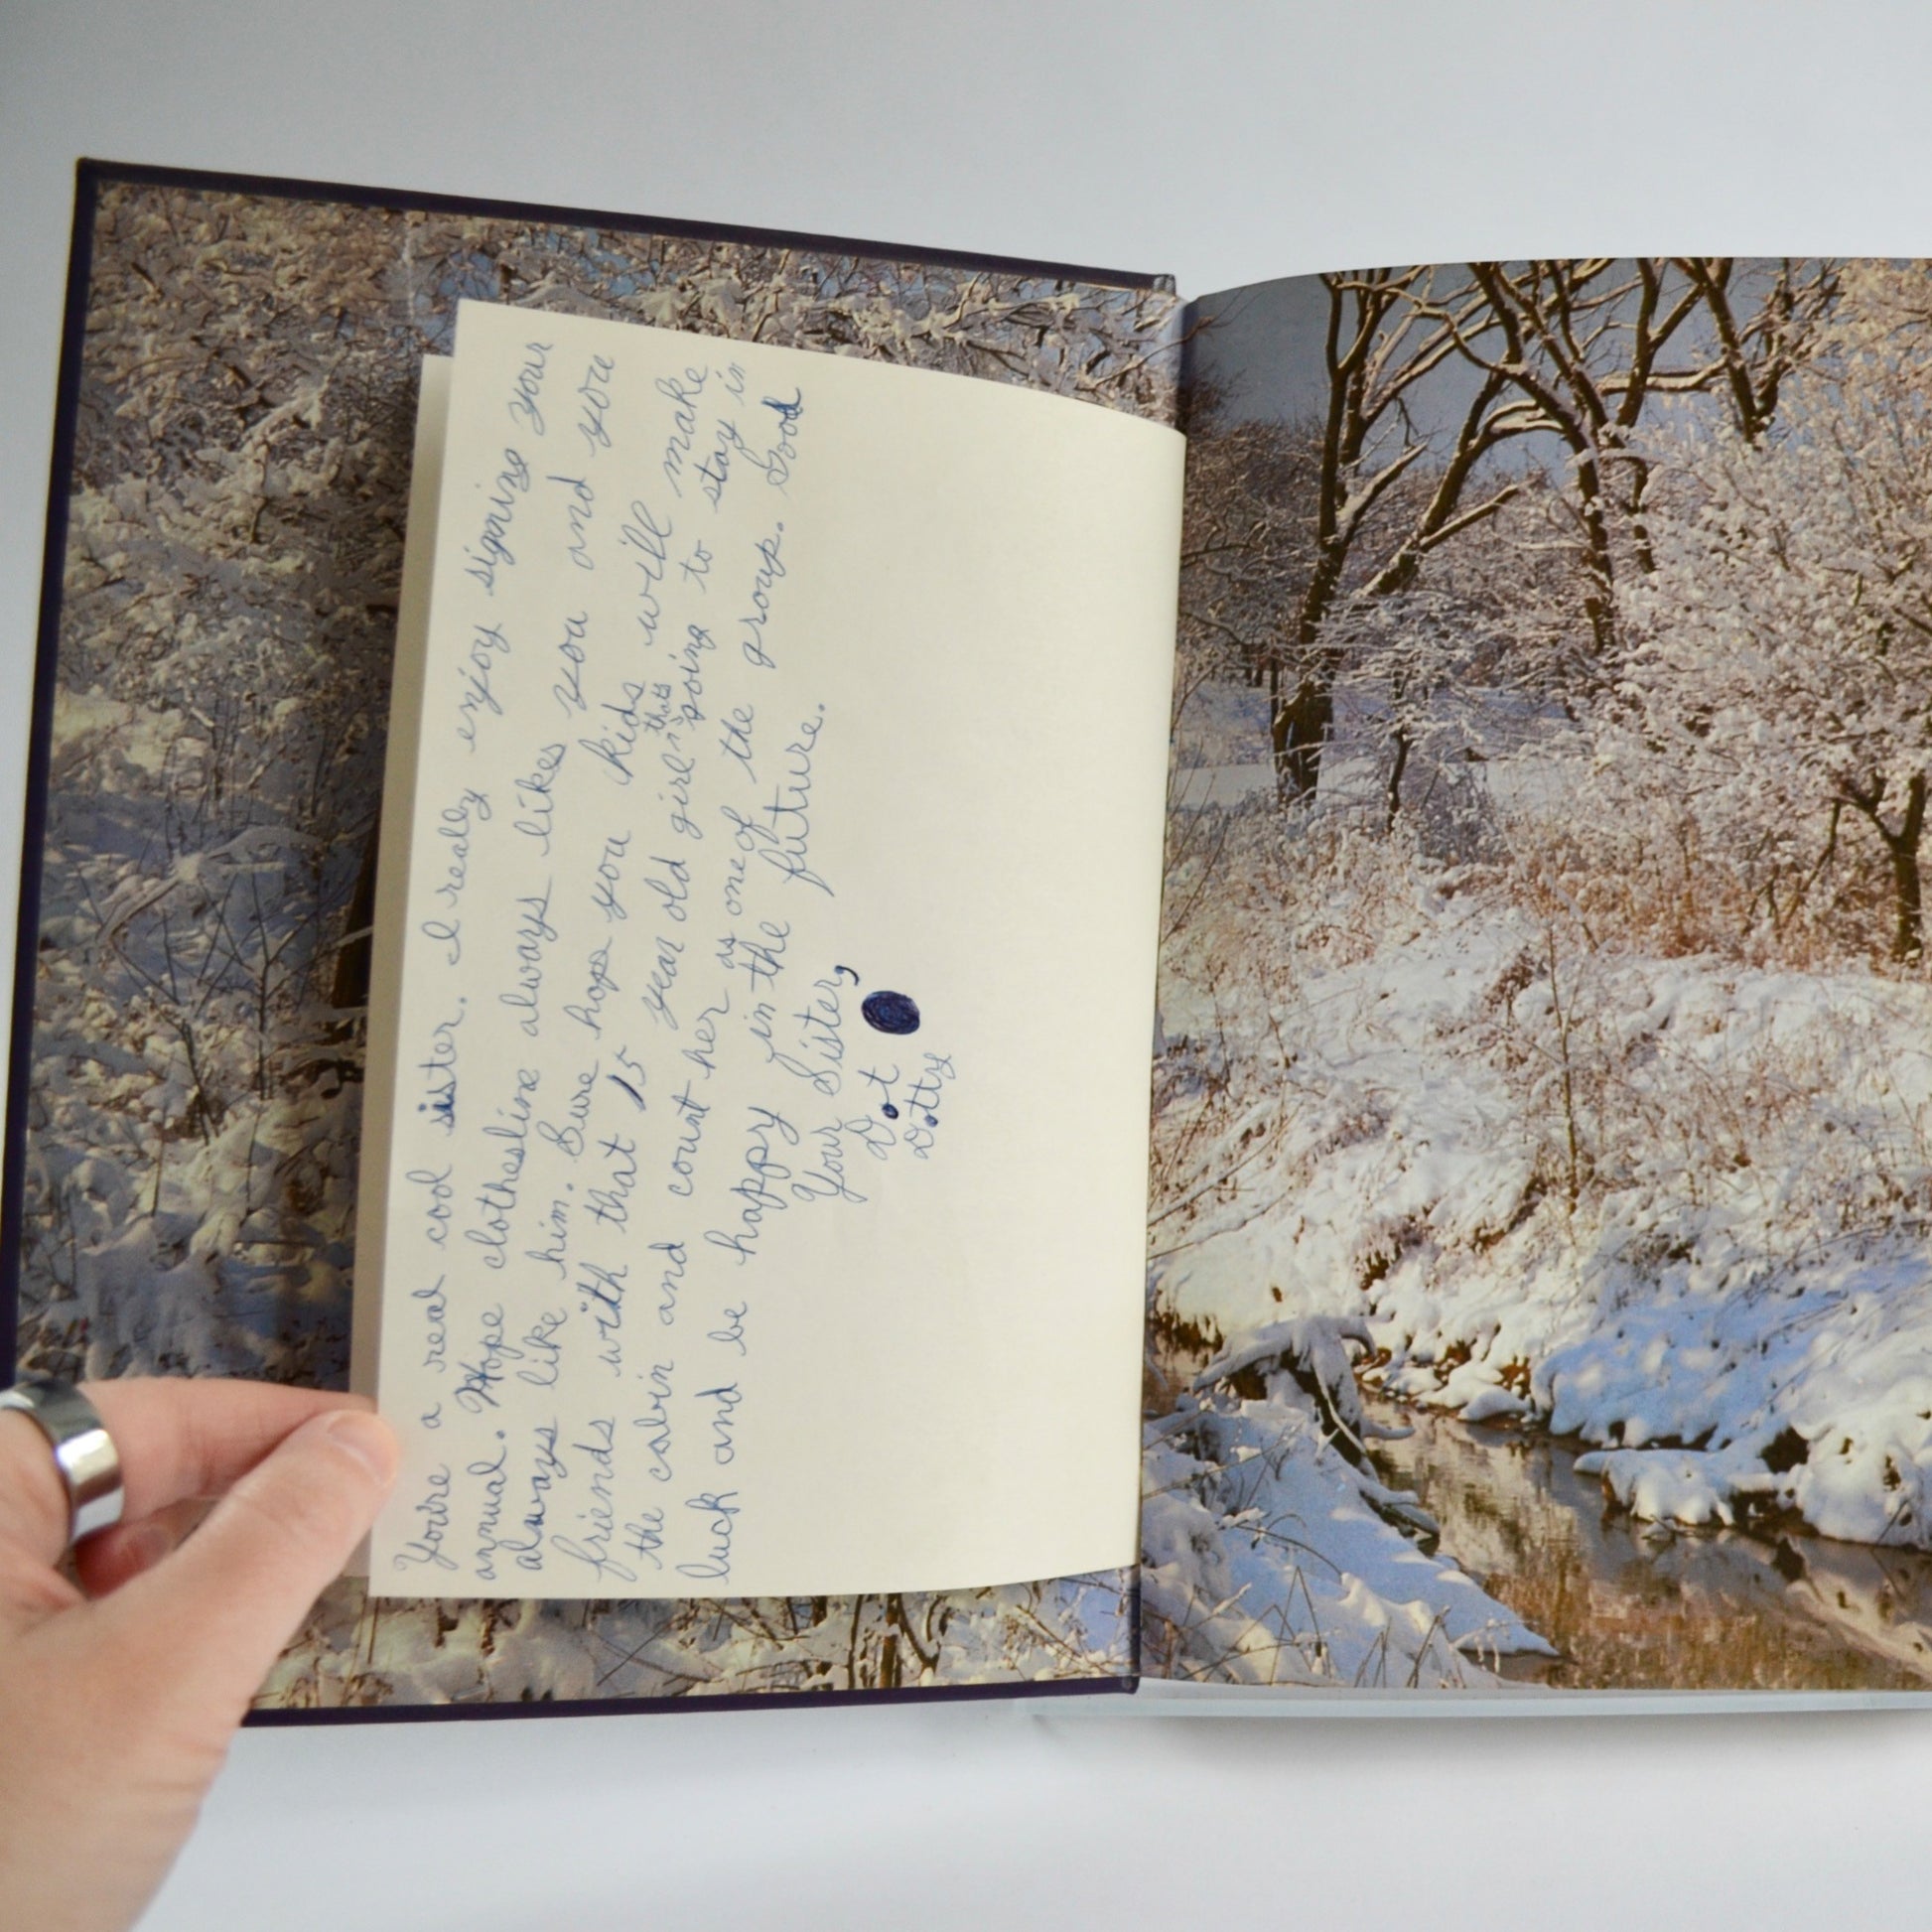 You're a real cool sister. I really enjoy signing your
annual. Hope clothesline always likes you and you
always like him. Sure hope you kids will make
friends with that 15 year old girl that's going to stay in
the cabin and count her as one of the group. Good
luck and be happy in the future.
Your Sister,
Dot
Dotty